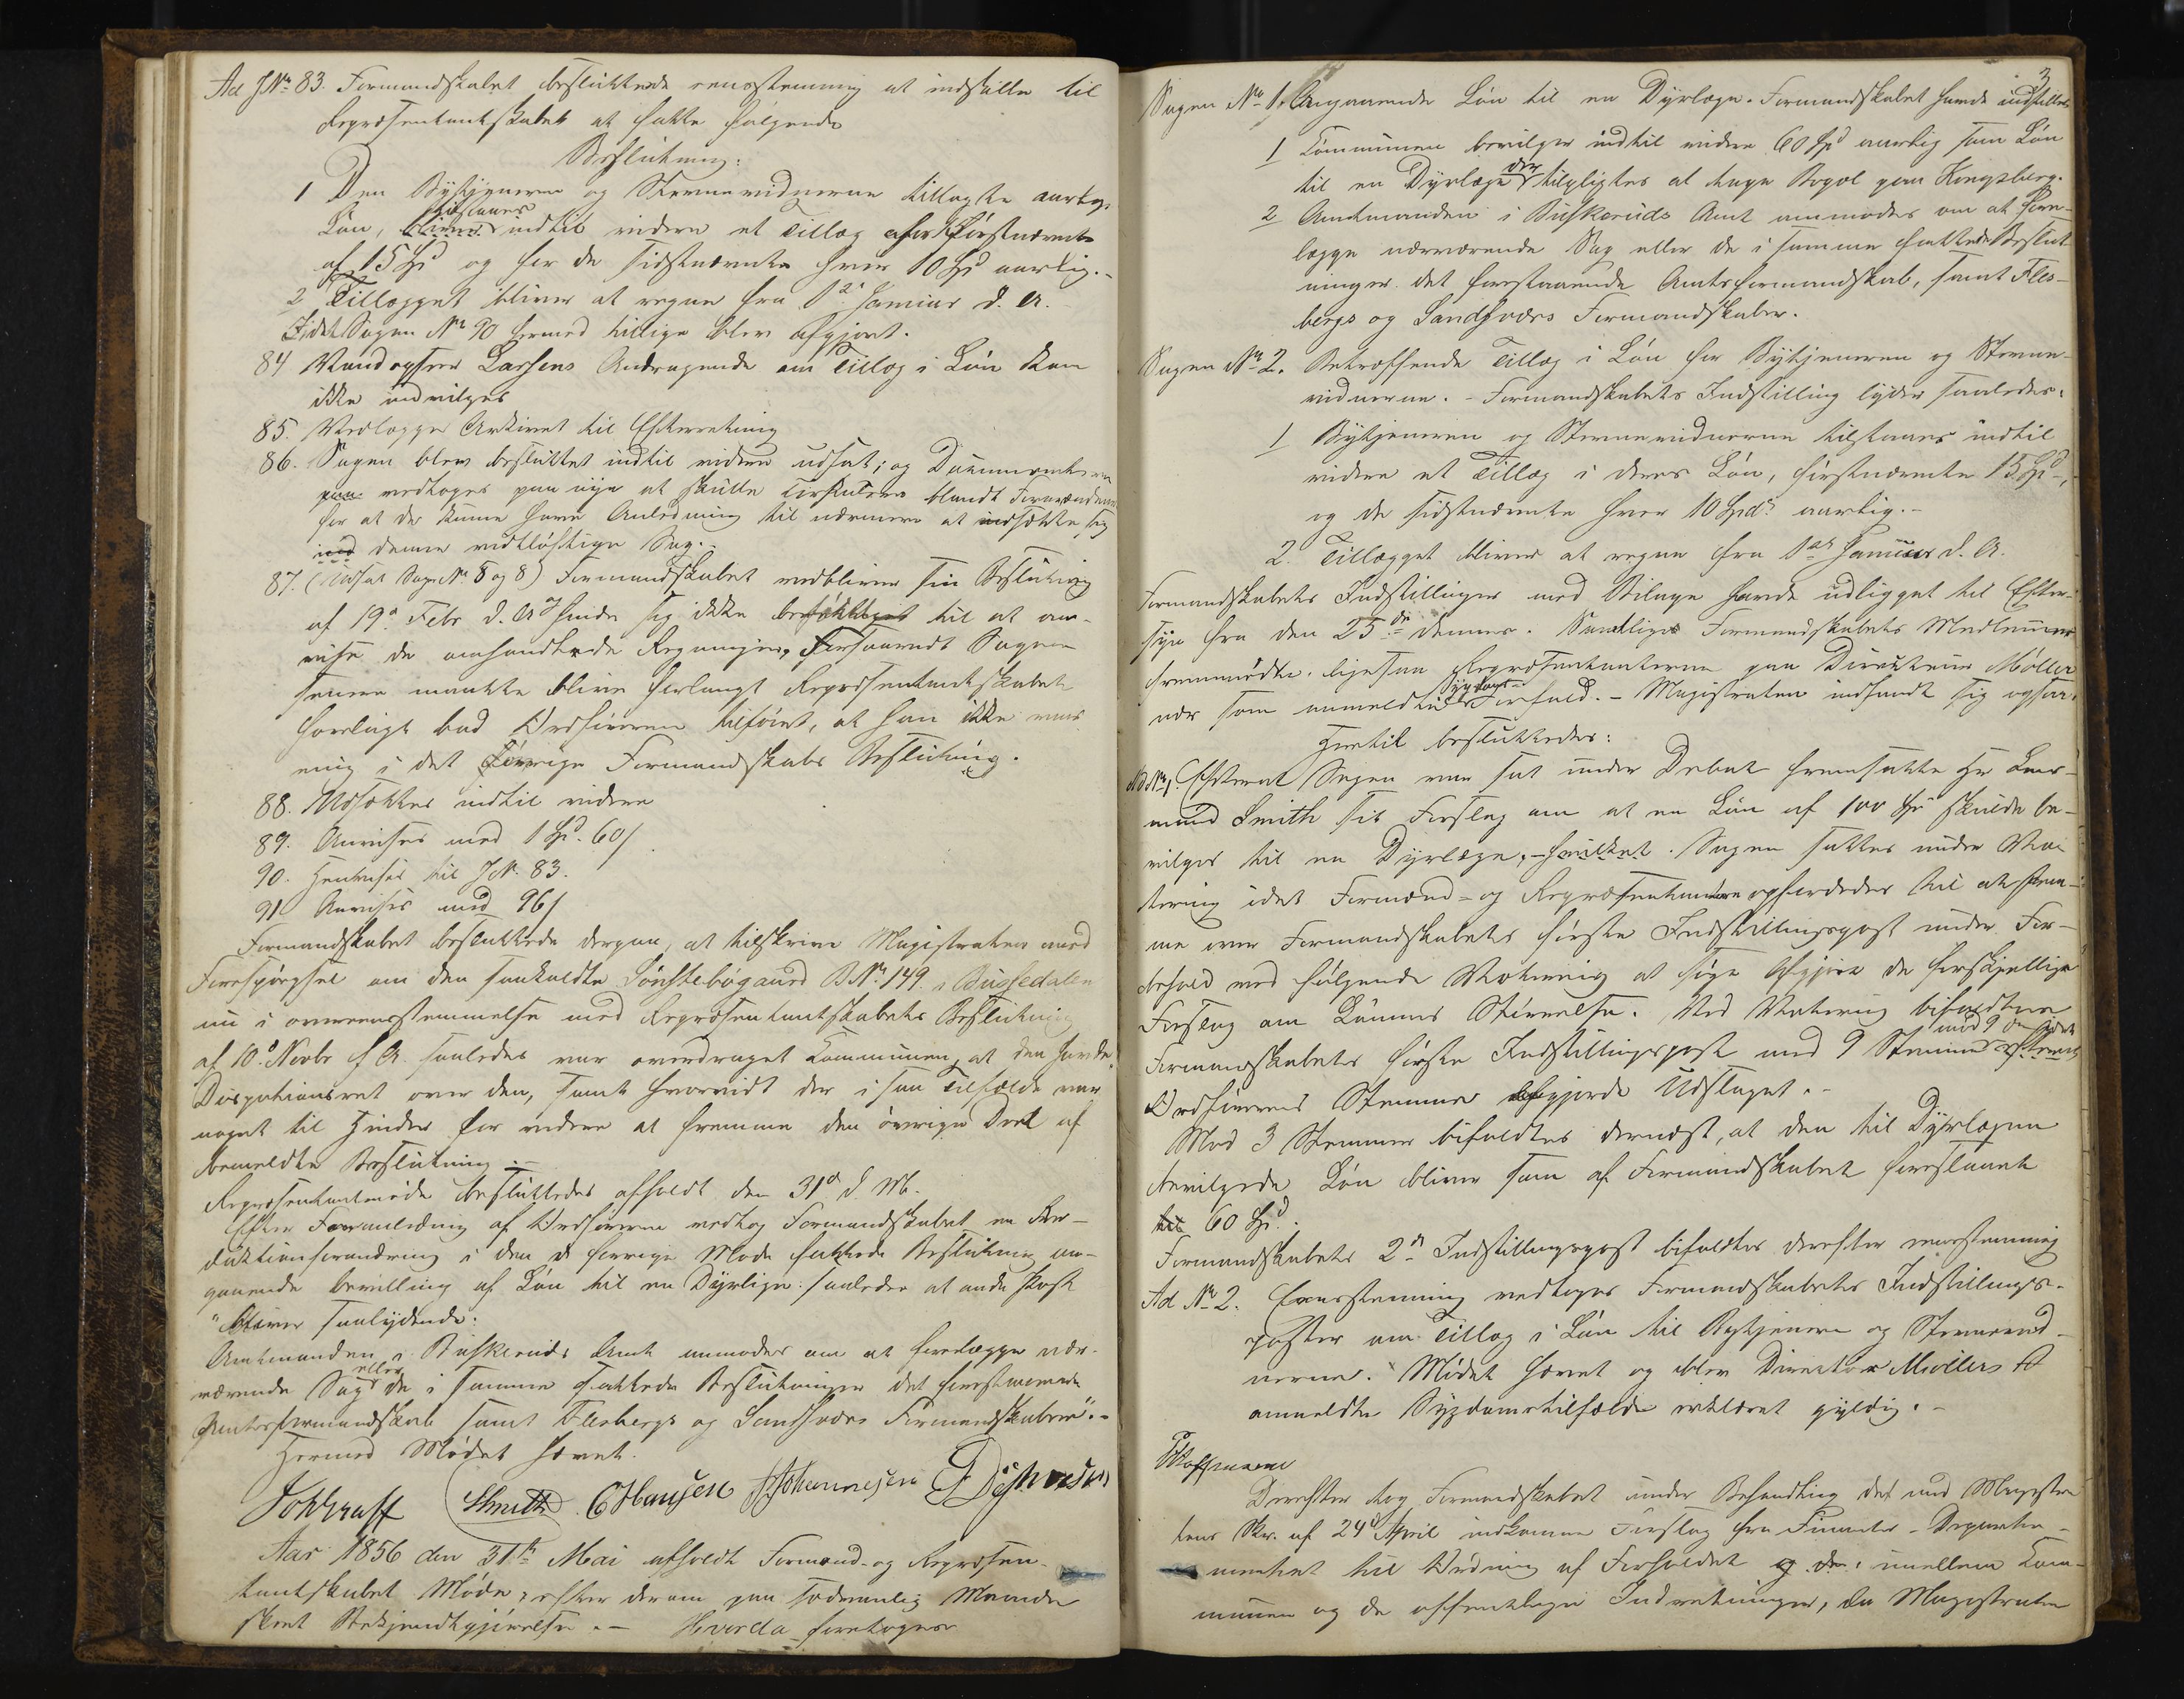 Ad JNo 83. Formandskabet besluttede eensstemmig at indstille til
Repræsentantskabet at fatte følgende
Beslutning:
1 Den Bytjeneren og Stevnevidnerne tillagte aarlige
Løn, tilstaaes indtil videre et Tillæg for Førstnævnte
af 15 Spd og for de sidstnævnte hver 10 Spd aarlig. -
2 Tillægget bliver at regne fra 1ste Januar d. A.
Idet Sagen No 90 hermed tillige blev afgjort.
84 Larsens Andragende om Tillæg i Løn kan
ikke indvilges
85. Vedlægges Arkivet til Efterretning
86. Sagen blev besluttet indtil videre udsat; og Documenterne
vedtoges paa nye at skulle cirkulere blandt Formændene
for at de kunne have Anledning til nærmere at indsætte sig
i denne vidtløftige Sag. -
87. (Udsat Sag No 8 og 8) Formandskabet vedbliver sin Beslutning
af 19de Febr. d. A. finder sig ikke beføiet til at an-
vise de omhandlede Regninger, Forsaavidt Sagen
senere maatte blive forlangt Repræsentantskabet
forelagt bad Ordføreren tilføiet, at han ikke var
enig i det øvrige Formandskabs Beslutning.
88. Udsættes indtil videre
89. Anvises med 1 Spd. 60 s
90. Henvises til JNo. 83.
91 Anvises med 96 s
Formandskabet besluttede derpaa, at tilskrive Magistraten med
Forespørgsel om den saakaldte Sønstebøgaard BNo 149 i
nu i overeensstemmelse med Repræsentantskabets Beslutning
af 10de Novbr f. A. saaledes var overdraget Kommunen, at den havde
Dispositionsret over den, samt hvorvidt der i saa Tilfælde var
noget til Hinder for videre at fremme den øvrige Deel af
bemeldte Beslutning. -
Repræsentantmøde besluttedes afholdt den 31te d. M.
Efter Foranledning af Ordføreren vedtog Formandskabet en Re-
daktionsforandring i den i forrige Møde fattede Beslutning an-
gaaende bevilling af Løn til en Dyrlæge: saaledes at anden Post
bliver saalydende:
"Amtmanden i Buskeruds Amt anmodes om at forelægge nær-
værende Sag eller de i samme fattede Beslutninger det forestaaende
Amtsformandskab samt Flesbergs og Sandsværs Formandskaber". -
Hermed Mødet hævet.
Smith C Hansen J Johannesen
Aar 1856 den 31te Mai afholdt Formand- og Repræsen-
tantskabet Møde, efter derom paa sædvanlig Maade
skeet Bekjendtgjørelse. - Hvorda foretoges
3
Sagen No 1. Angaaende Løn til en Dyrlæge. Formandskabet havde indstillet
1 Kommunen bevilger indtil videre 60 Spd aarlig som Løn
til en Dyrlæge der tilpligtes at tage Bopæl paa Kongsberg.
2 Amtmanden i Buskeruds Amt anmodes om at fore-
lægge nærværende Sag eller de i samme fattede Beslut-
ninger det forestaaende Amtsformandskab, samt Fles-
bergs og Sandsværs Formandskaber.
Sagen No 2. Betræffende Tillæg i Løn for Bytjeneren og Stevne-
vidnerne. - Formandskabets Indstilling lyder saaledes:
1 Bytjeneren og Stevnevidnerne tilstaaes indtil
videre et Tillæg i deres Løn, førstnævnte 15 Spd -,
og de sidstnævnte hver 10 Spd. aarlig. -
2. Tillægget bliver at regne fra 1ste Januar d. A.
Formandskabets Indstillinger med Bilage havde udligget til Efter-
syn fra den 25de dennes. Samtlige Formandskabets Medlemmer
fremmødte, ligesaa Repræsentanterne paa Direkteur Møller
nær som anmeldte Sygdoms Forfald. - Magistraten indfandt sig ogsaa.
Hertil besluttedes:
Ad No 1. Efterat Sagen var sat under Debat fremsatte Hr
Smith sit Forslag om at en Løn af 100 Spd skulde be-
vilges til en Dyrlæge, hvilket. Sagen sattes under Vo-
tering idet Formænd- og Repræsentanterne opfordredes til at stem-
me over Formandskabets første Indstillingspost under For-
behold ved følgende Votering at søge afgjort de forskjellige
Forslag om Lønnens Størrelse. Ved Votering bifaldtes
Formandskabets første Indstillingspost med 9 Stemmer mod 9
Ordførerens Stemme afgjorde Udslaget. -
Mod 3 Stemmer bifaldtes dernæst, at den til Dyrlægen
bevilgede Løn bliver som af Formandskabet foreslaaet
60 Spd.
Formandskabets 2den Indstillingspost bifaldtes derefter eensstemmig
Ad No 2. Eensstemmig vedtoges Formandskabets Indstillings-
poster om Tillæg i Løn til Bytjeneren og Stevnevid-
nerne. Mødet hævet og blev Direktør Møllers
anmeldte Sygdomstilfælde erklæret gyldig. -
Derefter tog Formandskabet under Behandling det med Magistra-
tens Skr. af 24de April indkomne Forslag fra Finants-Departe-
mentet til Ordning af Forholdet imellem Kom-
munen og de offentlige Indretninger, da Magistraten